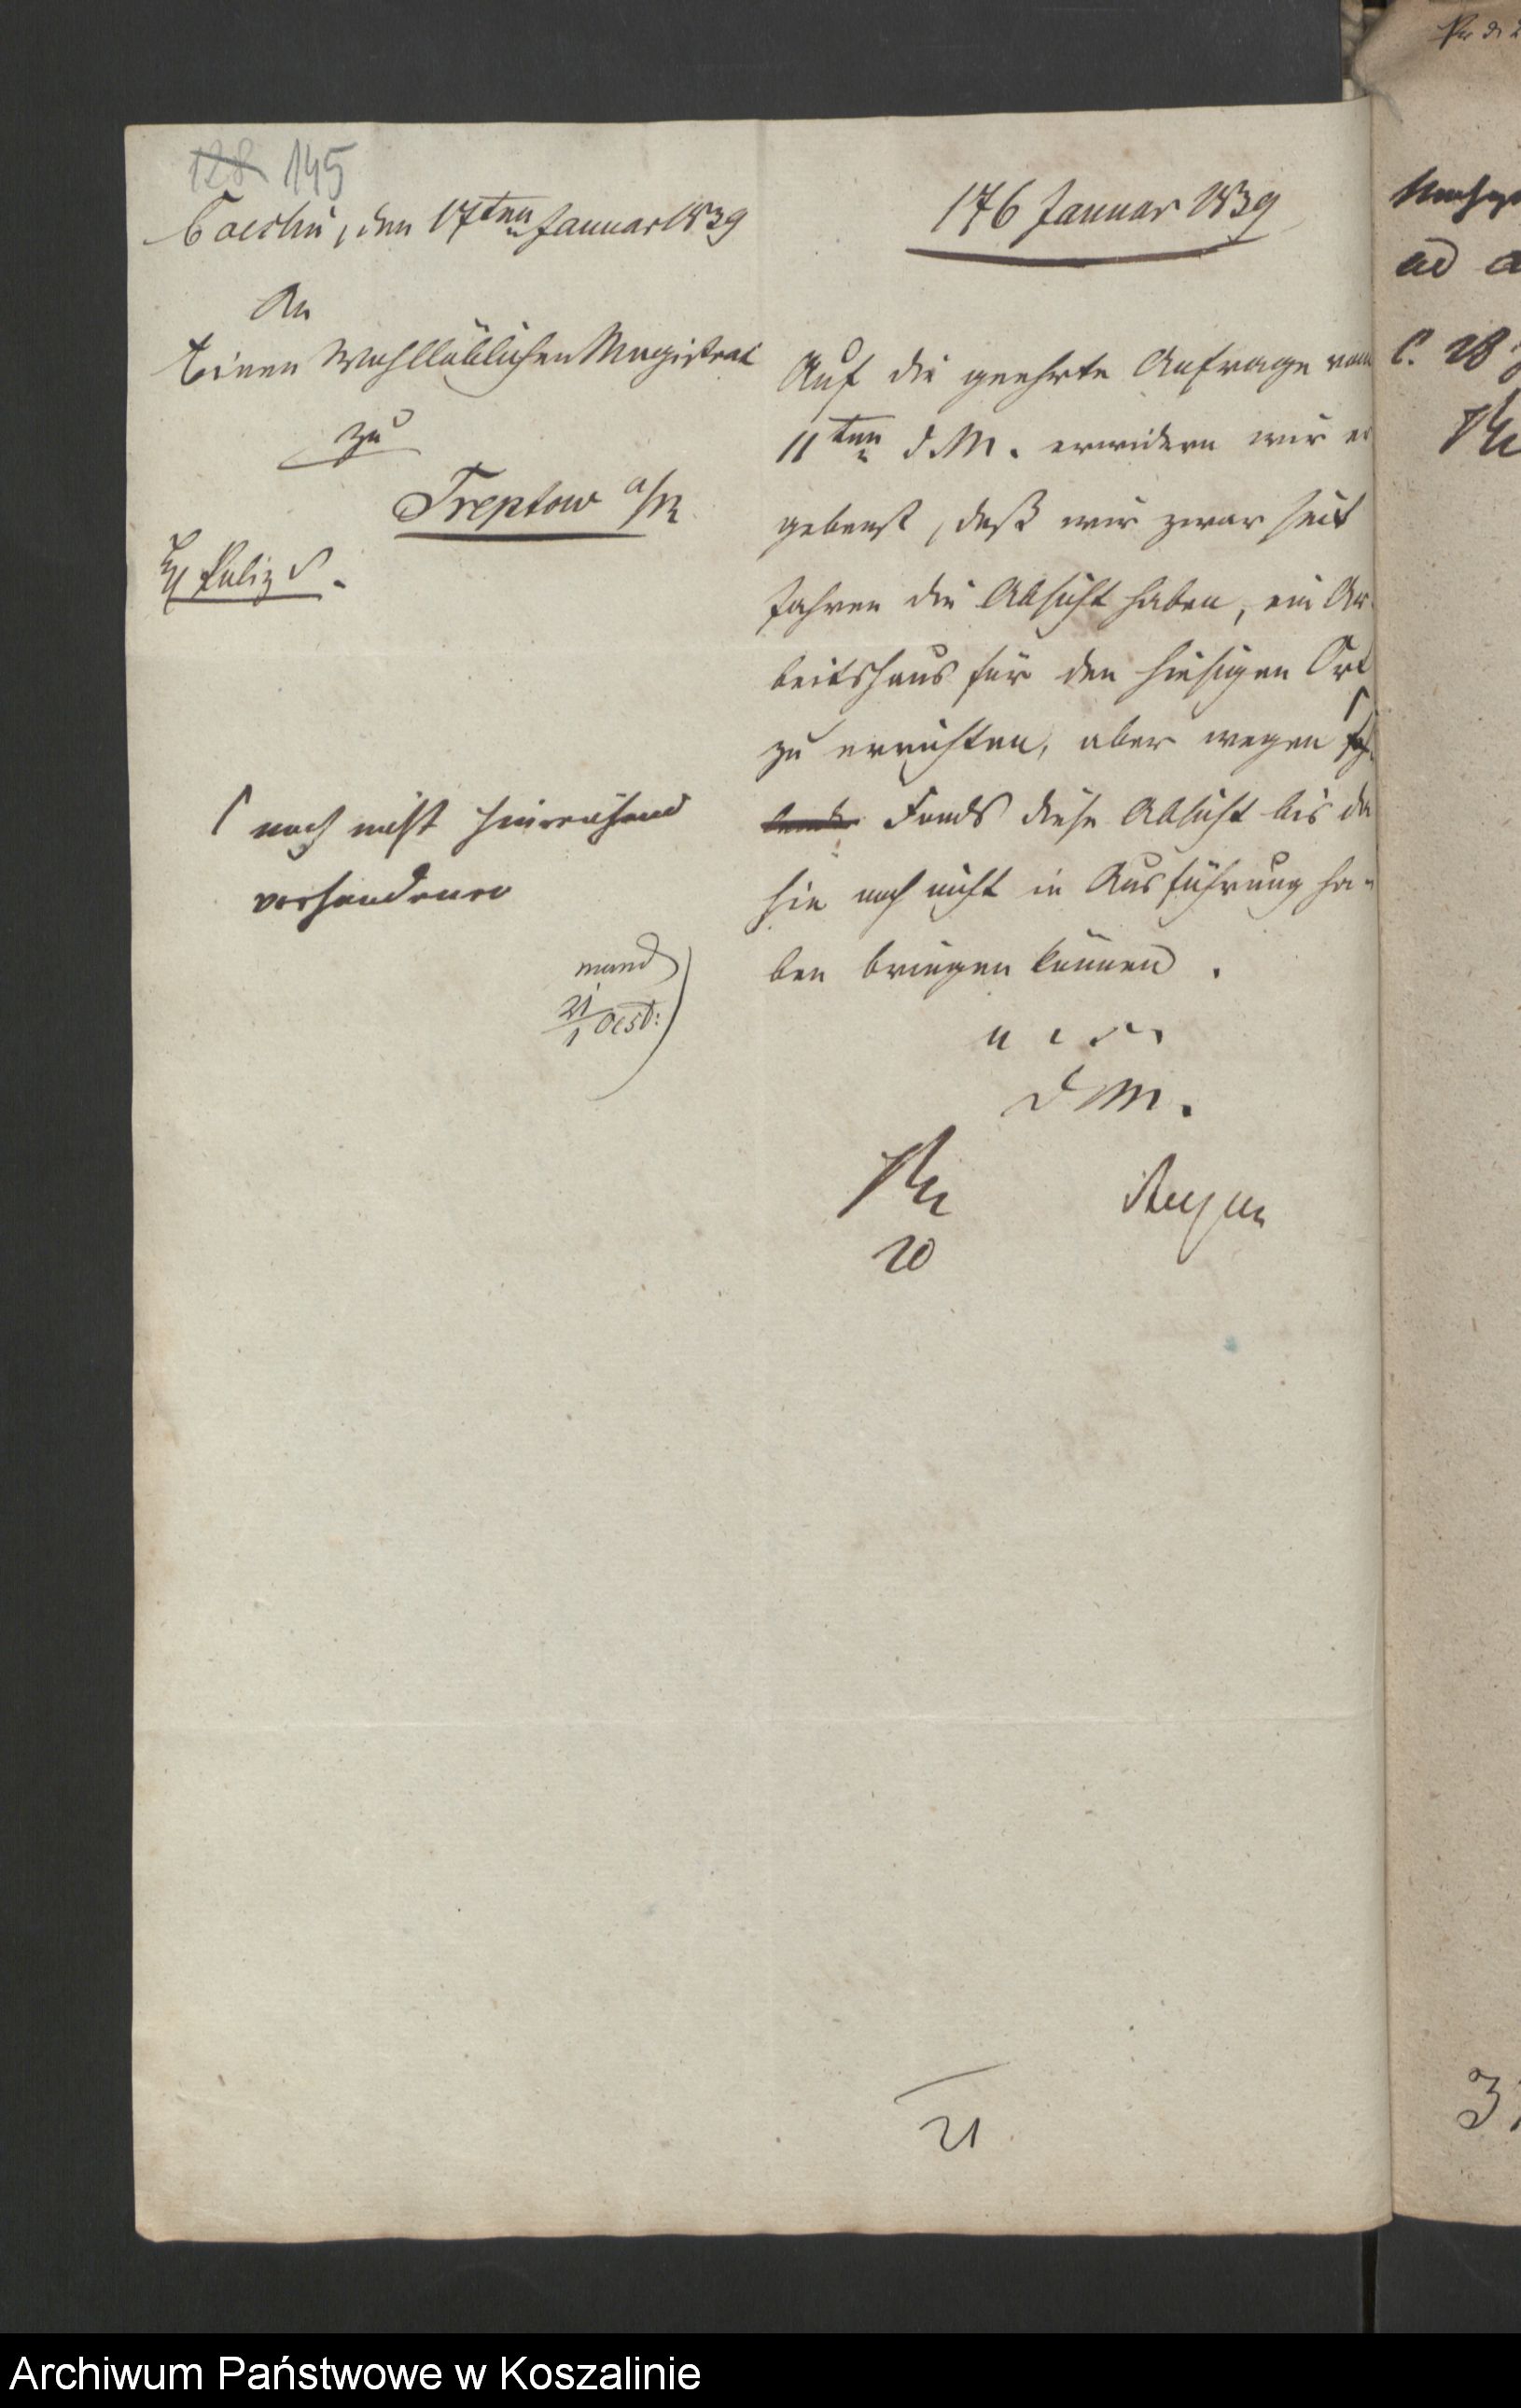 128 145
Coeslin, den 17ten Januar 1839
An
Einen Wohllöblichen Magistrat
zu
Treptow a/R.
noch nicht hinreichend
vorhandener
mund
21/1
176 Januar 1839
Auf die geehrte Anfrage vom
11ten d. M. erwidern wir er
gebenst, daß wir zwar seit
Jahren die Absicht haben, ein Ar-
beitshaus für den hiesigen Ort
zu errichten, aber wegen
Fonds diese Absicht bis da
hin noch nicht in Ausführung ha-
ben bringen können.
d M.
20
21
ad
Archiwum Państwowe w Koszalinie